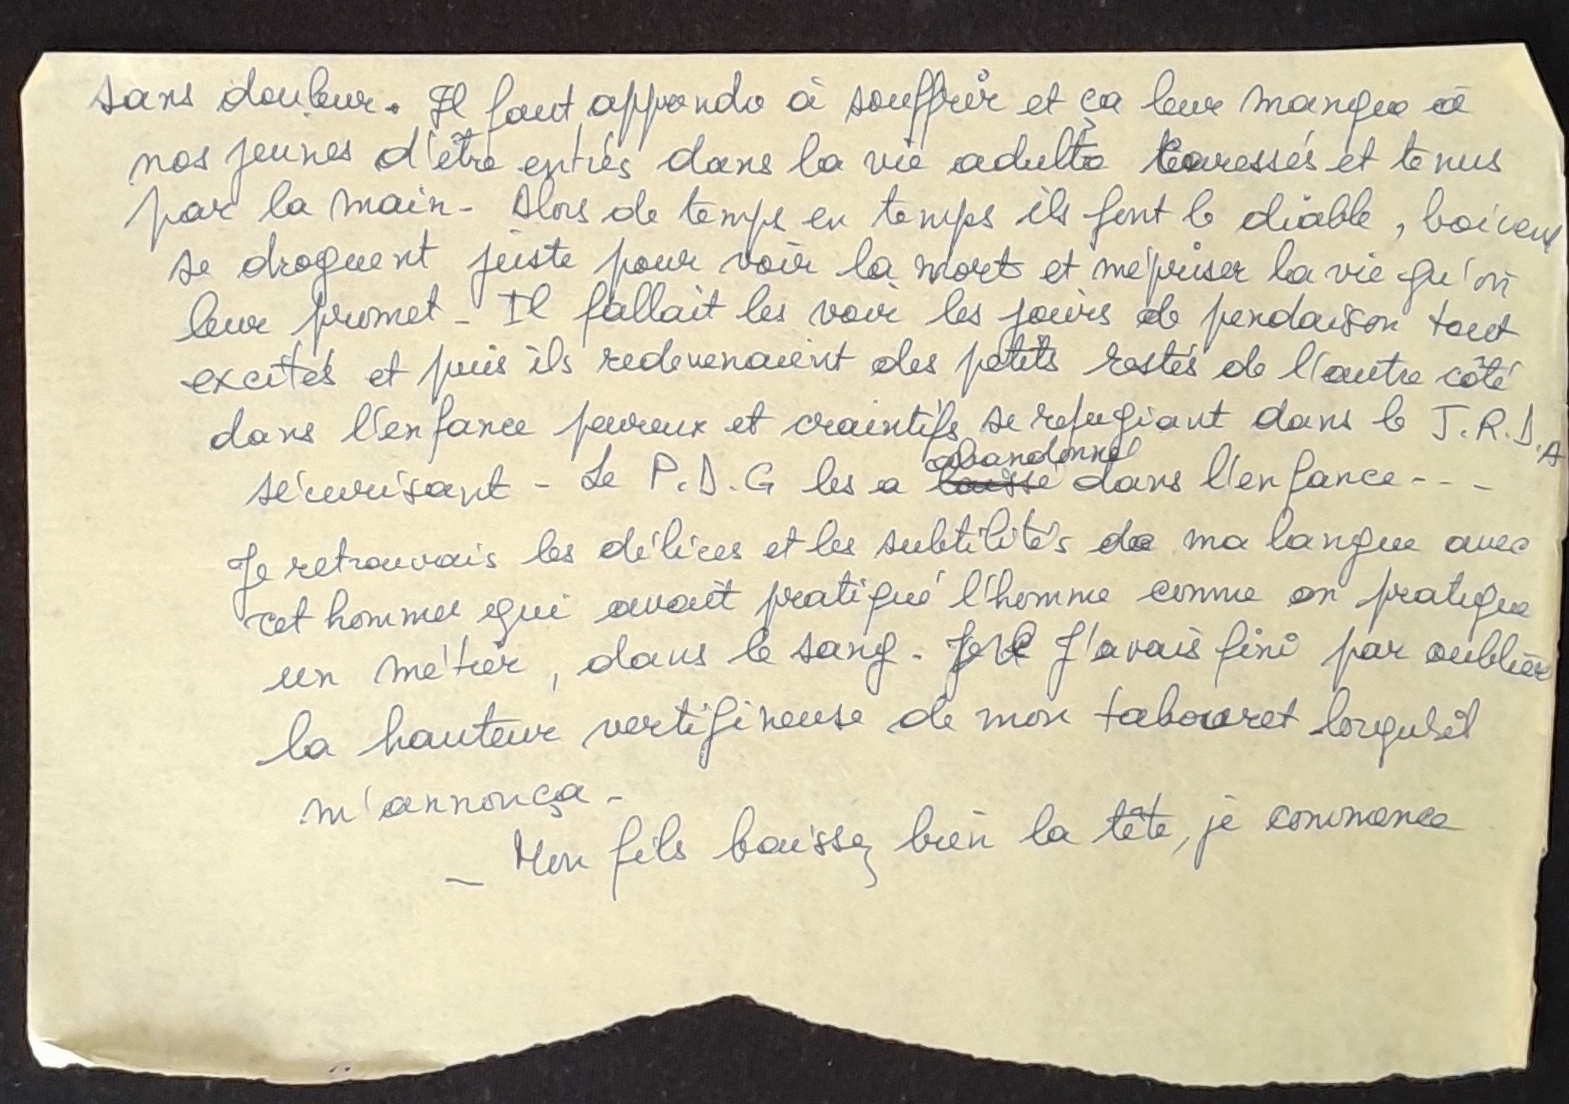 sans douleur. Il faut apprendre à souffrir et ça leur manque à
nos jeunes d'être entrés dans la vie adulte caressés et tenus
par la main - Alors de temps en temps ils font le diable, boivent
se droguent juste pour voir la mort et mépriser la vie qu'on
leur promet - Il fallait les voir les jours de pendaison tout
excités et puis ils redevenaient des petits restés de l'autre côté
dans l'enfance peureux et craintifs se refugiant dans le J.R.D.A
sécurisant - Le P.D.G les a abandonné dans l'enfance - - -
Je retrouvais les délices et les subtilités de ma langue avec
cet homme qui avait pratiqué l'homme comme on pratique
un métier, dans le sang. J'avais fini par oublier
la hauteur vertigineuse de mon tabouret lorqu'il
m'annonça -
_ Mon fils baissez bien la tête, je commence